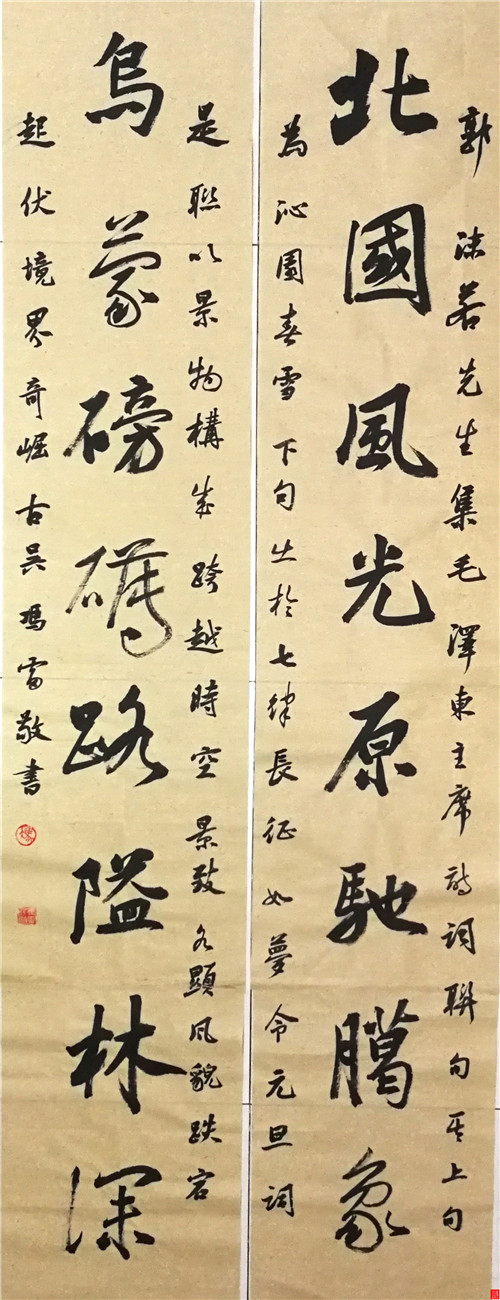 郭沫若先生集毛澤東主席詩詞聯句其上句
北國風光原馳臈象
為沁園春雪下句出於七律長征如夢令元旦詞
是聯以景物構成跨越時空景致各顯風貌跌宕
烏蒙磅礴路隘林深
起伏境界奇崛古吳馮雷敬書